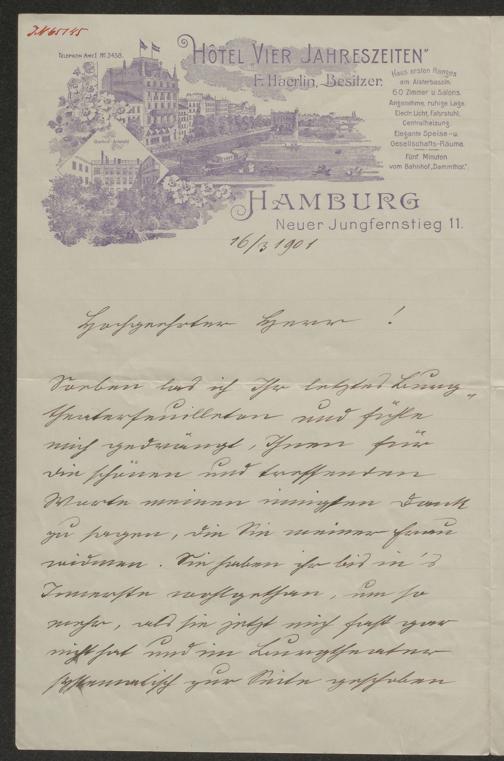 I.N. 65145
TELEPHON AMT I. Nº 3458.
„HÔTEL VIER JAHRESZEITEN”
F. Haerlin, Besitzer.
Haus ersten Ranges
am Alsterbassin.
60 Zimmer u. Salons.
Angenehme, ruhige Lage.
Electr. Licht, Fahrstuhl,
Centralheizung.
Elegante Speise- u.
Gesellschafts-Räume.
Fünf Minuten
vom Bahnhof „Dammthor”.
HAMBURG
Neuer Jungfernstieg 11.
16/3 1901
Hochgeehrter Herr !
Soeben las ich Ihr letztes Burg-
theaterfeuilleton und fühle
mich gedrängt, Ihnen für
die schönen und treffenden
Worte meinen innigsten Dank
zu sagen, die Sie meiner Frau
widmen. Sie haben ihr bis in's
Innerste wohlgethan, um so
mehr, als sie jetzt mich fast gar
nicht hat und im Burgtheater
systematisch zur Seite geschoben